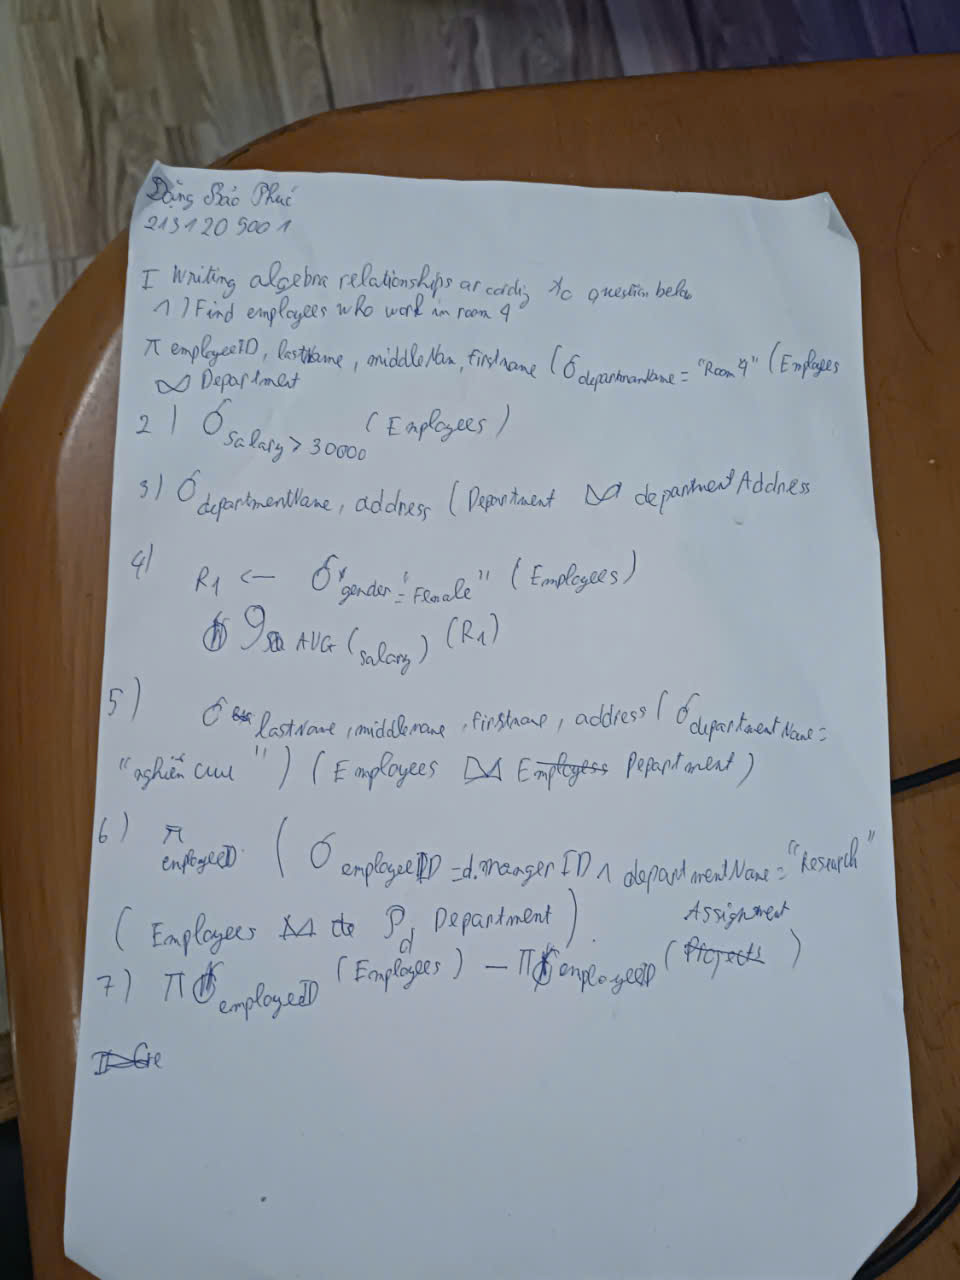 Đặng Bảo Phúc
213120 5001
I Writing algebra relationships according to question below
1) Find employees who work in room 4
π employeeID, lastName, middleNam, firstname (σ departmanName = "Room 4" (Employees
⋈ Department
2) σ salary > 30000 (Employees)
3) σ departmentName, address (Department ⋈ departmentAddress
4)
R1 ← σ gender = "Female" (Employees)
AVG (salary) (R1)
5)
σ lastName, middlename, firstname, address (σ departmentName =
"nghiên cứu") (Employees ⋈ Department)
6) π employeeID (σ employeeID = d.manger ID ∧ departmentName = "Research"
(Employees ⋈ ρ d Department)
Assignment
7) π employeeID (Employees) − π employeeID ( )